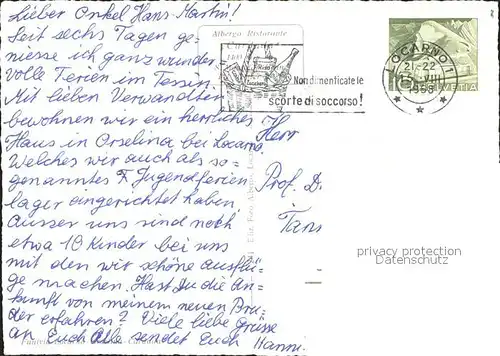 Lieber Onkel Hans-Martin!
Seit sechs Tagen ge-
niesse ich ganz wunder-
volle Ferien im Tessin.
Mit lieben Verwandten
bewohnen wir ein herrliches
Haus in Orselina bei Locarno.
Welches wir auch als so-
genanntes F. Jugendferien
lager eingerichtet haben.
Ausser uns sind noch
etwa 10 Kinder bei uns
mit den wir schöne Ausflü-
ge machen. Hast Du die An-
kunft von meinem neuen Bru-
der erfahren? Viele liebe Grüsse
an Euch Alle sendet Euch Hanni.
Albergo Ristorante
Non dimenticate le
scorte di soccorso!
LOCARNO 1
21-22
15. VIII
1958
HELVETIA
Herr
Prof. D
Tann
privacy protection
Datenschutz